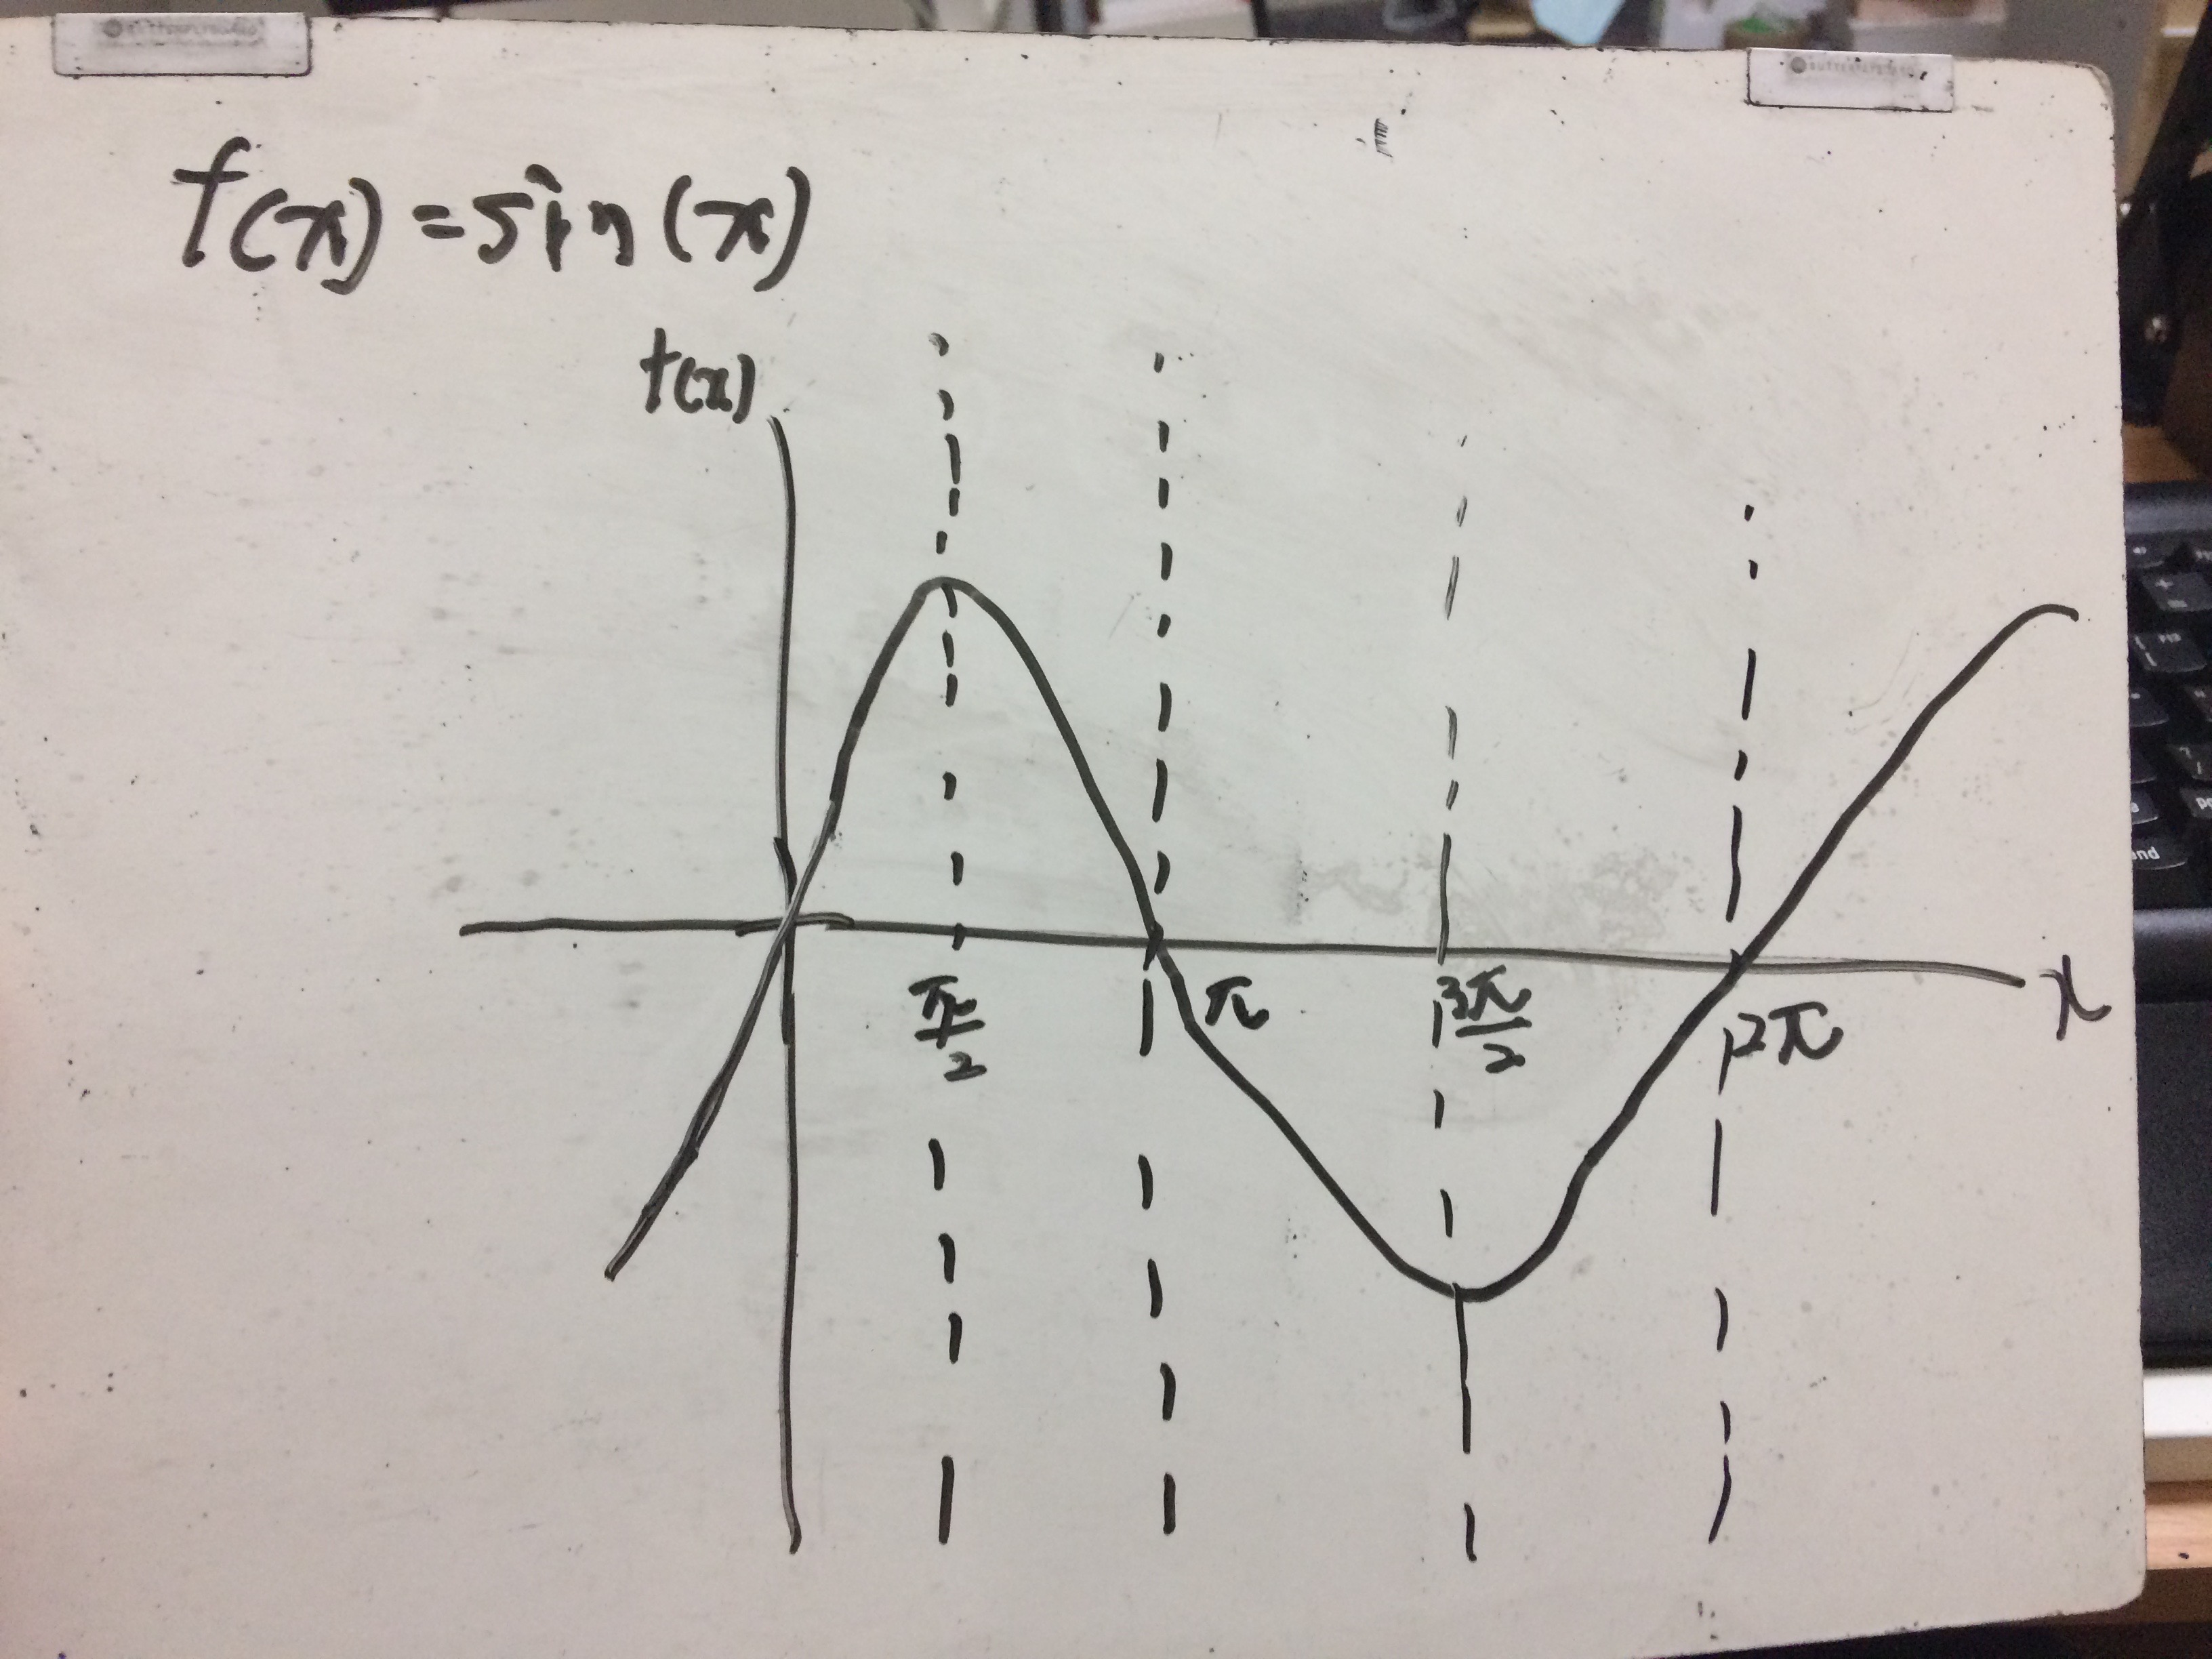 f(x)=sin(x)
f(x)
π/2
π
3π/2
2π
x
end